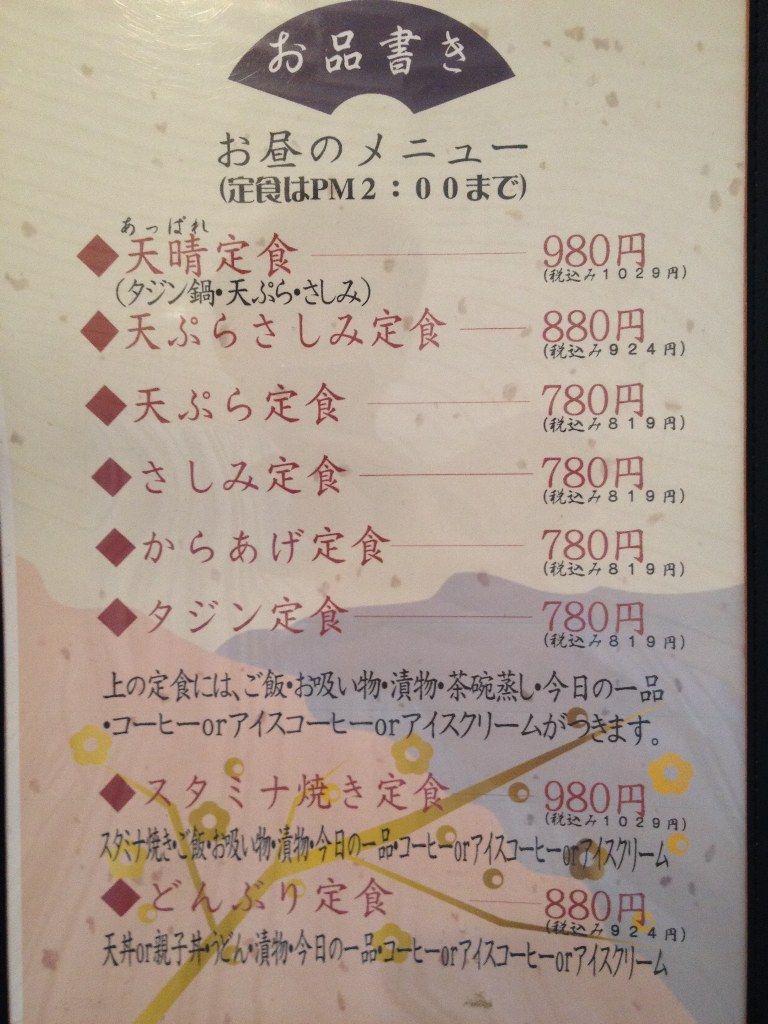 お品書き
お昼のメニュー
(定食はPM2:00まで)
あっぱれ
◆天晴定食 980円
(税込み1029円)
(タジン鍋・天ぷら・さしみ)
◆天ぷらさしみ定食 880円
(税込み924円)
◆天ぷら定食 780円
(税込み819円)
◆さしみ定食 780円
(税込み819円)
◆からあげ定食 780円
(税込み819円)
◆タジン定食 780円
(税込み819円)
上の定食には、ご飯・お吸い物・漬物・茶碗蒸し・今日の一品
・コーヒーorアイスコーヒーorアイスクリームがつきます。
◆スタミナ焼き定食 980円
(税込み1029円)
スタミナ焼き・ご飯・お吸い物・漬物・今日の一品・コーヒーorアイスコーヒーorアイスクリーム
◆どんぶり定食 880円
(税込み924円)
天丼or親子丼・うどん・漬物・今日の一品・コーヒーorアイスコーヒーorアイスクリーム